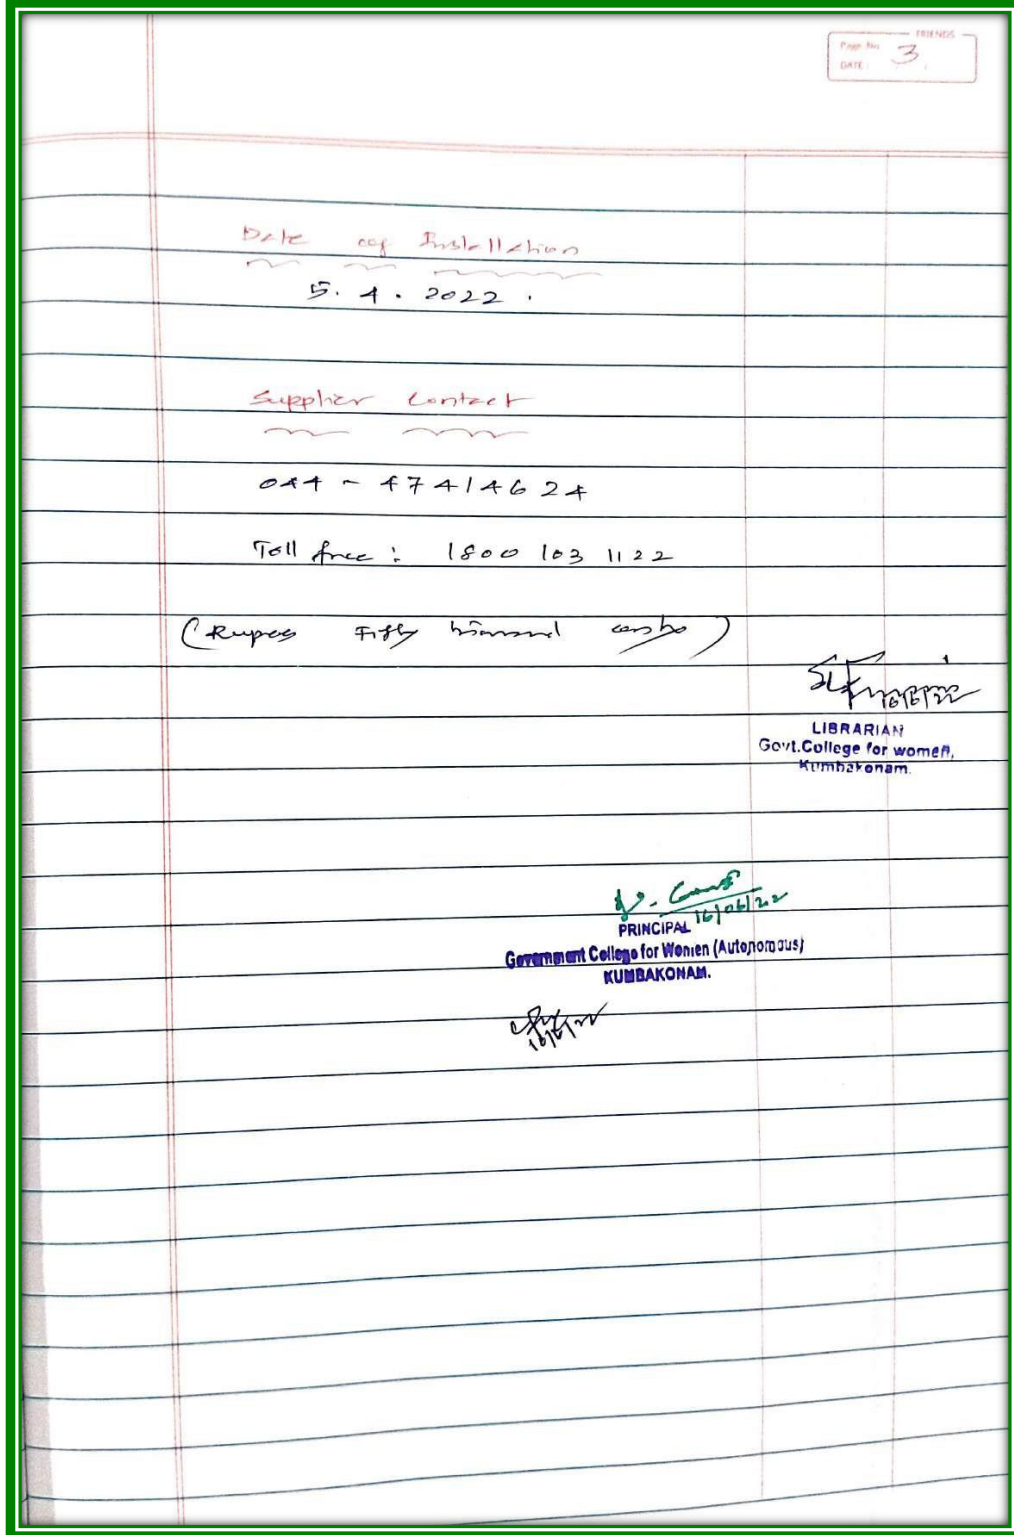 FRIENDS
Page No 3
DATE :
Date of Installation
5. 4. 2022.
Supplier Contact
044 - 47414624
Toll free : 1800 103 1122
(Rupees Fifty thousand only)
16/6/22
LIBRARIAN
Govt.College for women,
Kumbakonam.
16/06/22
PRINCIPAL
Government College for Women (Autonomous)
KUMBAKONAM.
16/6/22